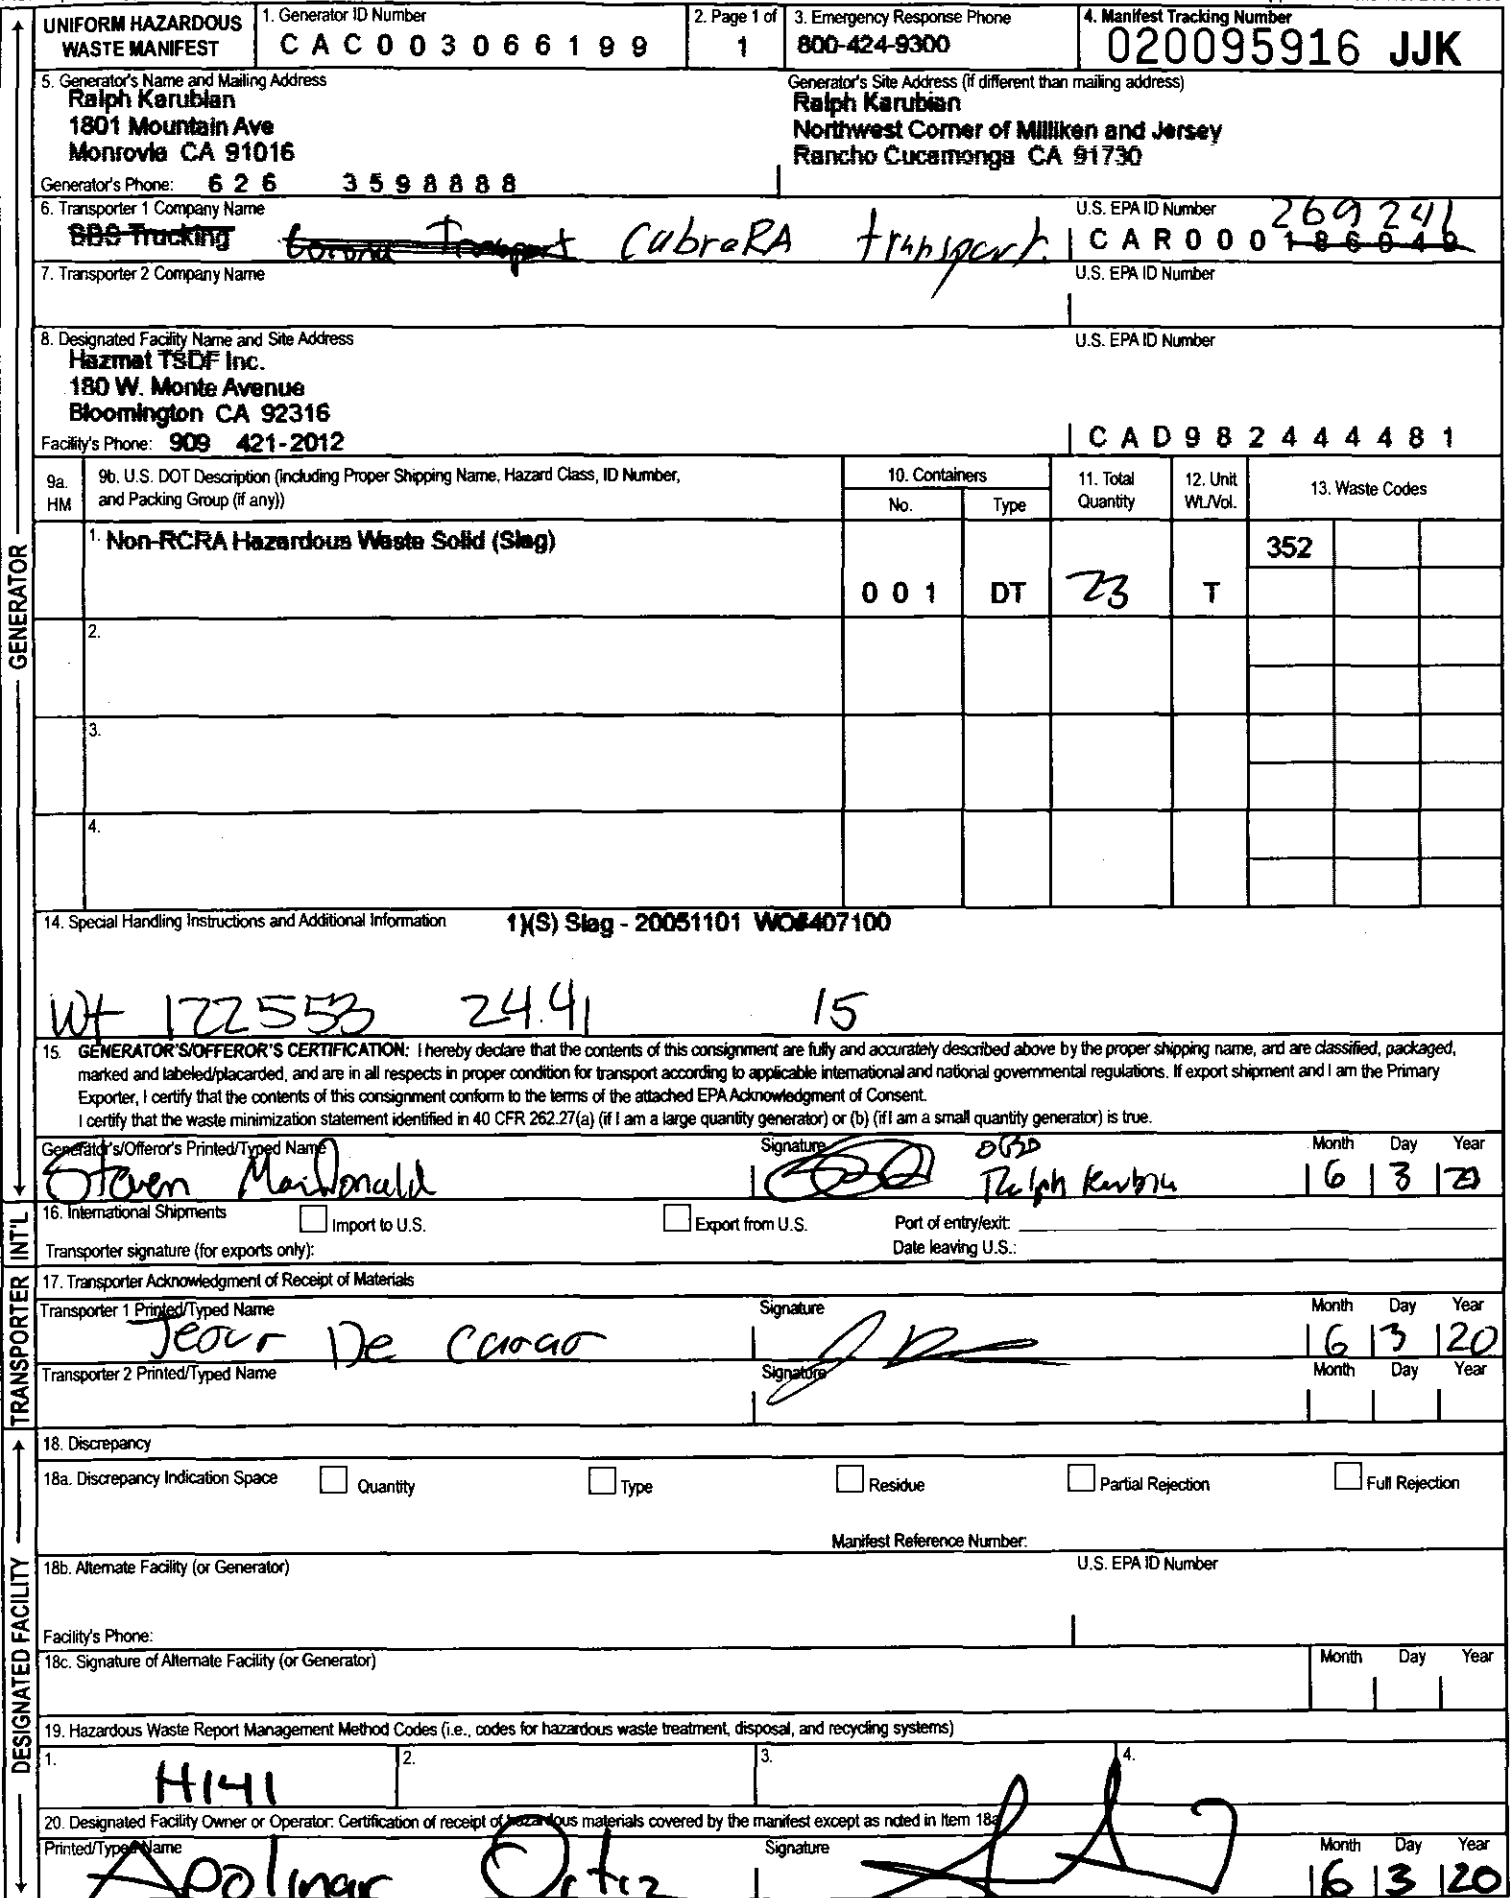 UNIFORM HAZARDOUS WASTE MANIFEST
1. Generator ID Number
CAC003066199
2. Page 1 of
1
3. Emergency Response Phone
800-424-9300
4. Manifest Tracking Number
020095916 JJK
5. Generator's Name and Mailing Address
Ralph Karubian
1801 Mountain Ave
Monrovia CA 91016
Generator's Phone: 626 3598888
Generator's Site Address (if different than mailing address)
Ralph Karubian
Northwest Corner of Milliken and Jersey
Rancho Cucamonga CA 91730
6. Transporter 1 Company Name
SBS Trucking Corona Transport CabreRA transport.
U.S. EPA ID Number
269241
CAR000186049
7. Transporter 2 Company Name
U.S. EPA ID Number
8. Designated Facility Name and Site Address
Hazmat TSDF Inc.
180 W. Monte Avenue
Bloomington CA 92316
Facility's Phone: 909 421-2012
U.S. EPA ID Number
CAD982444481
9a. HM
9b. U.S. DOT Description (including Proper Shipping Name, Hazard Class, ID Number, and Packing Group (if any))
10. Containers
No.
Type
11. Total Quantity
12. Unit Wt./Vol.
13. Waste Codes
1. Non-RCRA Hazardous Waste Solid (Slag)
001 DT 23 T 352
2.
3.
4.
14. Special Handling Instructions and Additional Information
1)(S) Slag - 20051101 WO#407100
Wt 122553 24.41 15
15. GENERATOR'S/OFFEROR'S CERTIFICATION: I hereby declare that the contents of this consignment are fully and accurately described above by the proper shipping name, and are classified, packaged,
marked and labeled/placarded, and are in all respects in proper condition for transport according to applicable international and national governmental regulations. If export shipment and I am the Primary
Exporter, I certify that the contents of this consignment conform to the terms of the attached EPA Acknowledgment of Consent.
I certify that the waste minimization statement identified in 40 CFR 262.27(a) (if I am a large quantity generator) or (b) (if I am a small quantity generator) is true.
Generator's/Offeror's Printed/Typed Name
Steven MacDonald
Signature
OBO
Ralph
Month Day Year
6 3 20
16. International Shipments
Import to U.S.
Export from U.S.
Port of entry/exit:
Transporter signature (for exports only):
Date leaving U.S.:
17. Transporter Acknowledgment of Receipt of Materials
Transporter 1 Printed/Typed Name
De
Signature
Month Day Year
6 3 20
Transporter 2 Printed/Typed Name
Signature
Month Day Year
18. Discrepancy
18a. Discrepancy Indication Space
Quantity
Type
Residue
Partial Rejection
Full Rejection
Manifest Reference Number:
18b. Alternate Facility (or Generator)
U.S. EPA ID Number
Facility's Phone:
18c. Signature of Alternate Facility (or Generator)
Month Day Year
19. Hazardous Waste Report Management Method Codes (i.e., codes for hazardous waste treatment, disposal, and recycling systems)
1. H141
2.
3.
4.
20. Designated Facility Owner or Operator: Certification of receipt of hazardous materials covered by the manifest except as noted in Item 18a
Printed/Typed Name
Apolinar Ortiz
Signature
Month Day Year
6 3 20
GENERATOR
INT'L
TRANSPORTER
DESIGNATED FACILITY